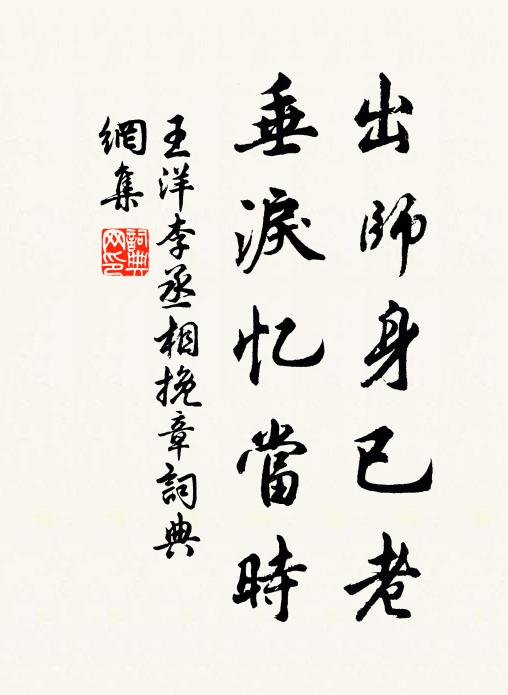 出師身已老
垂淚忆當時
王洋李丞相挽章詞典
網集
詞典
网印